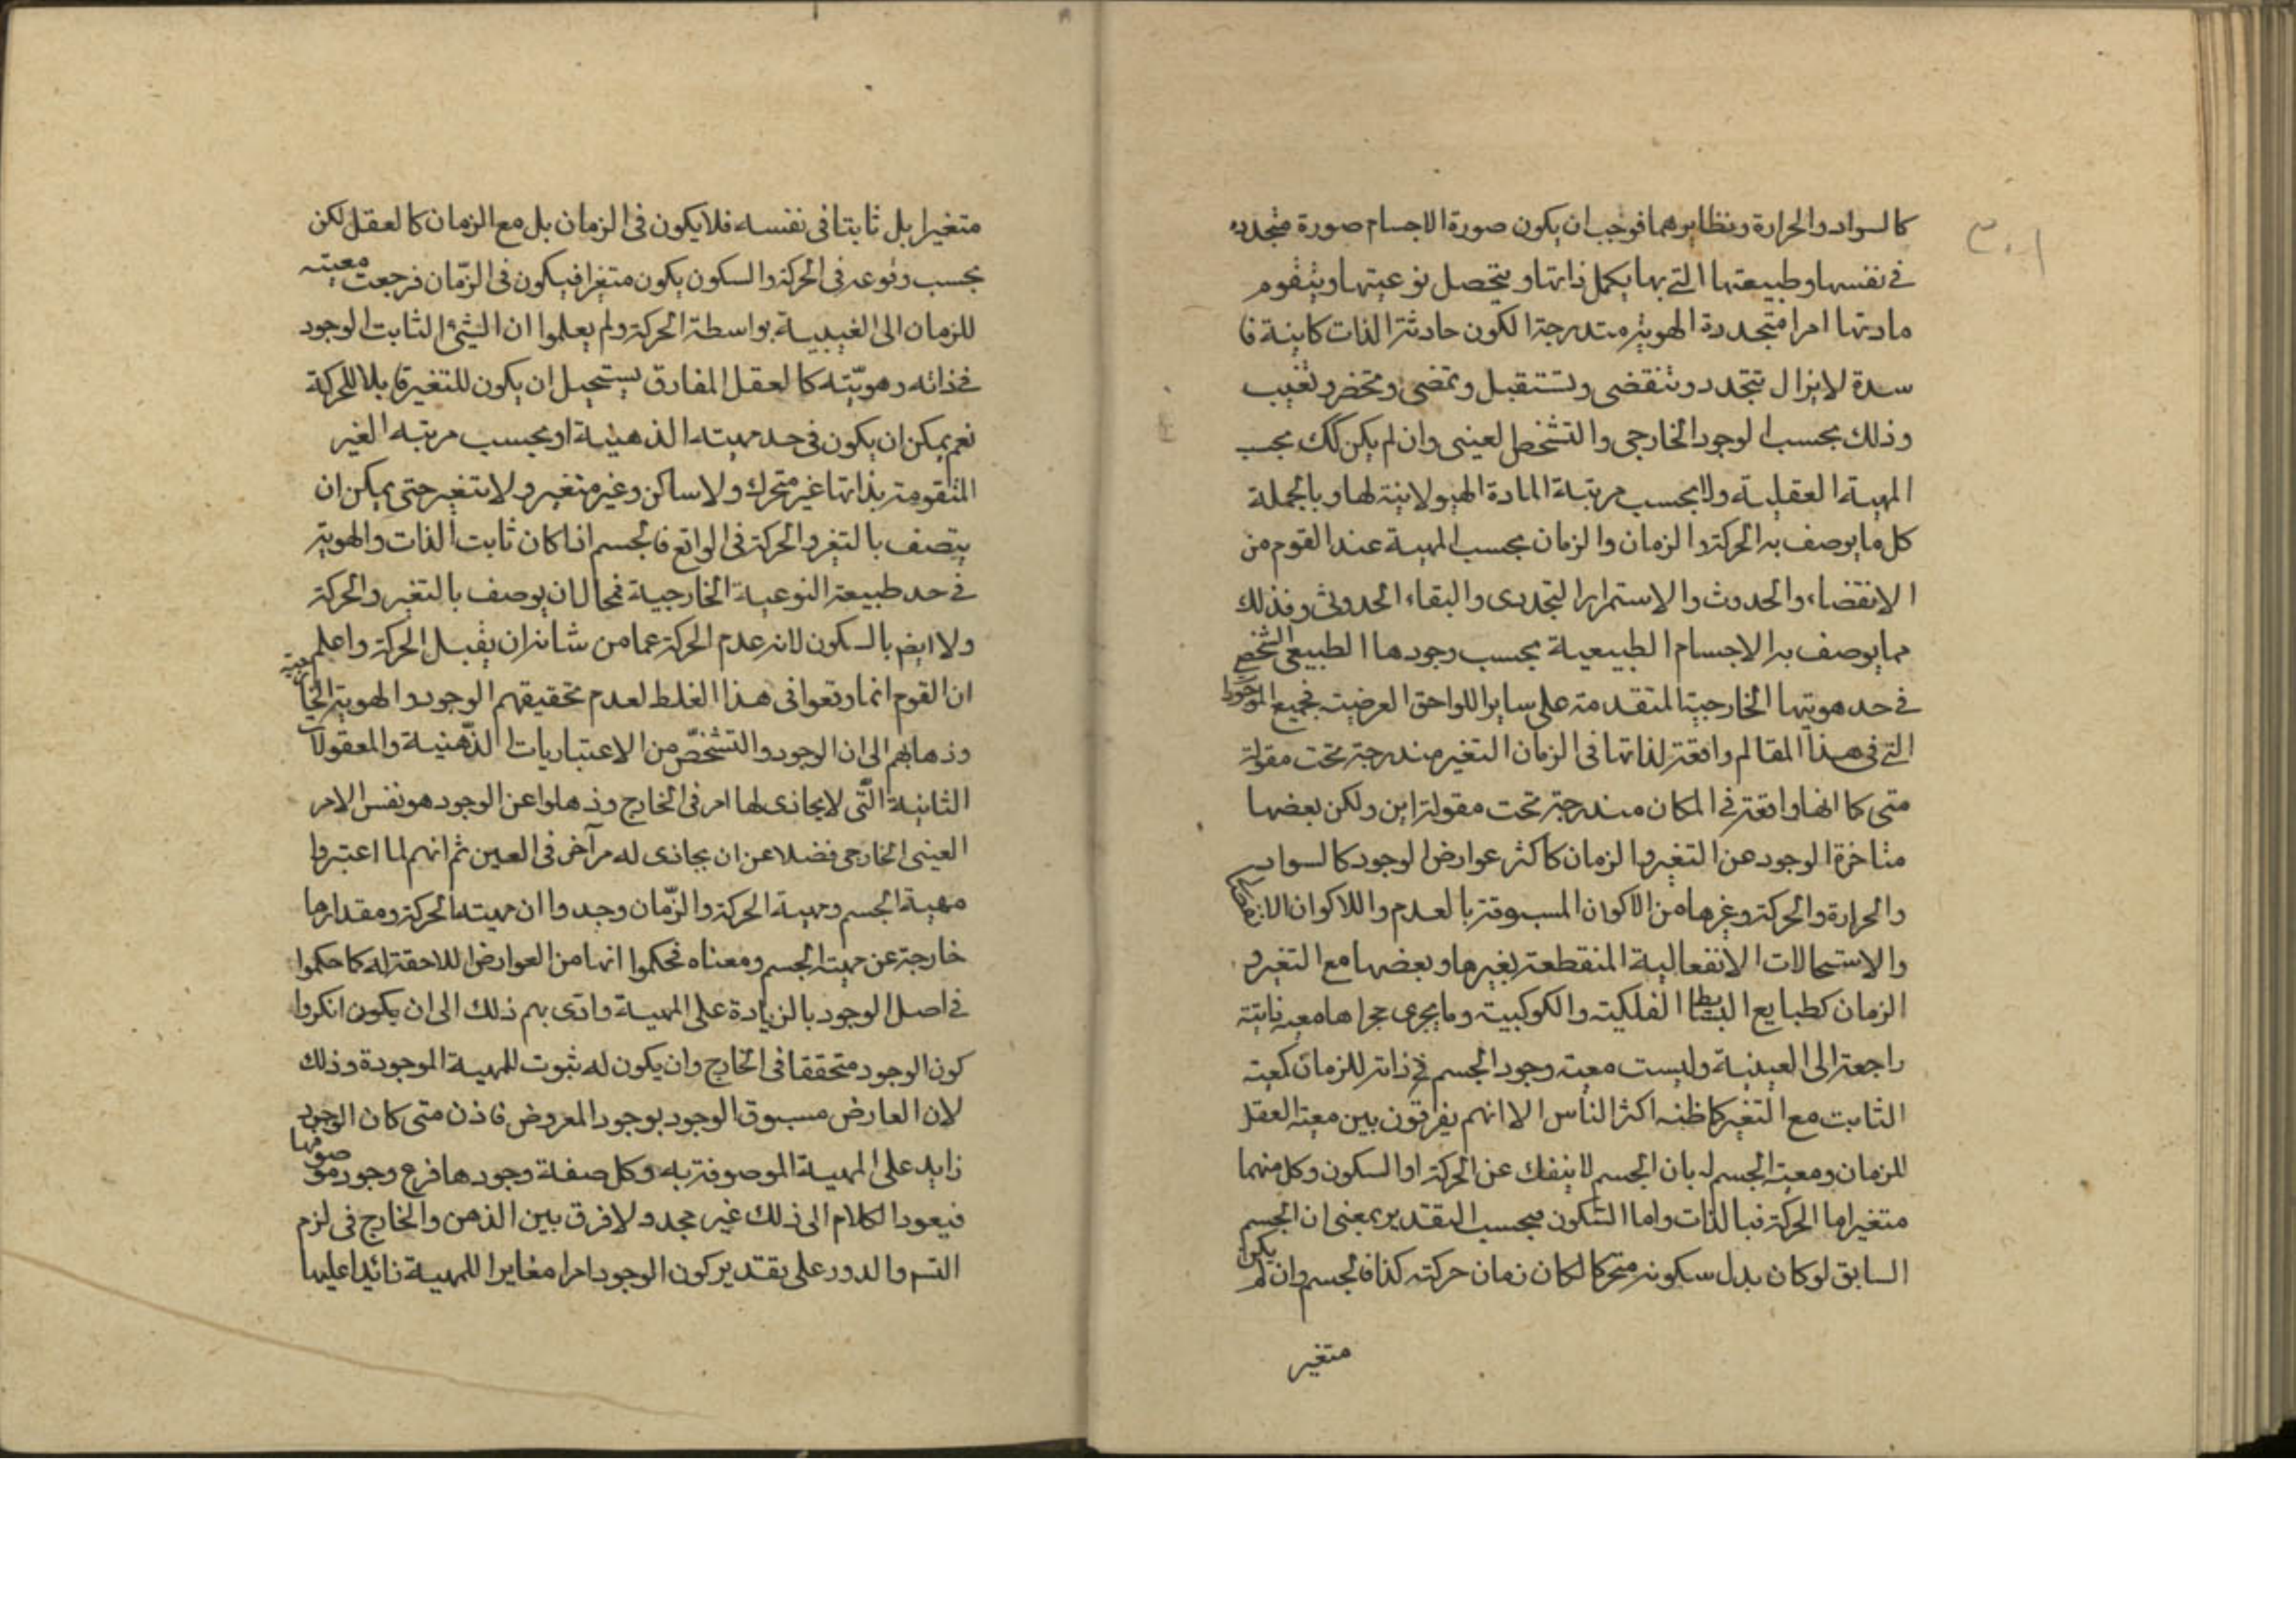 ٣٠١
كالسواد والحرارة ونظايرهما فوجب ان يكون صورة الاجسام صورة متجدده
فى نفسها وطبيعتها التى بها يكمل ذاتها ويتحصل نوعيتها ويتقوم
مادتها امرا متجددة الهوية متدرجة الكون حادثة الذات كاينة فا
سدة لا يزال يتجدد وتنقضى وتستقبل وتمضى وتحضر وتغيب
وذلك بحسب الوجود الخارجى والتشخص العينى وان لم يكن كك بحسب
المهية العقلية ولا بحسب مرتبة المادة الهيولانية لها وبالجملة
كل ما يوصف به الحركة والزمان والزمان بحسب المهية عند القوم من
الانقضاء والحدوث والاستمرار التجددى والبقاء الحدوثى وفذلك
مما يوصف به الاجسام الطبيعية بحسب وجودها الطبيعى الشخصى
فى حد هويتها الخارجية المتقدمة على ساير اللواحق العرضية فجميع الموجودا
التى فى هذا المقالم واقعة لذاتها فى الزمان التغير مندرجة تحت مقولة
متى كما انها واقعة فى المكان مندرجة تحت مقولة اين ولكن بعضها
متاخرة الوجود عن التغير والزمان كاكثر عوارض الوجود كالسواد
والحرارة والحركة وغيرها من الاكوان المسبوقة بالعدم واللاكوان
والاستحالات الانفعالية المنقطعة بغيرها وبعضها مع التغير و
الزمان كطبايع البسايط الفلكية والكوكبية وما يجرى مجراها معية ثابتة
راجعة الى العينية وليست معية وجود الجسم فى ذاته للزمان كمعية
الثابت مع التغير كما ظنه اكثر الناس الا انهم يفرقون بين معية العقل
للزمان ومعية الجسم له بان الجسم لا ينفك عن الحركة او السكون وكل منهما
متغير اما الحركة فبالذات واما السكون فبحسب التقدير بمعنى ان الجسم
السابق لو كان بدل سكونه متحركا لكان زمان حركته كذا فالجسم وان لم يكن
متغير
متغيرا بل ثابتا فى نفسه فلا يكون فى الزمان بل مع الزمان كالعقل لكن
بحسب وقوعه فى الحركة والسكون يكون متغيرا فيكون فى الزمان فرجعت معيته
للزمان الى الغيبية بواسطة الحركة ولم يعلموا ان الشئ الثابت الوجود
فى ذاته وهويته كالعقل المفارق يستحيل ان يكون للتغير قابلا للحركة
نعم يمكن ان يكون فى حد مهيته الذهنية او بحسب مرتبه الغير
المتقومة بذاتها غير متحرك ولا ساكن وغير متغير ولا يتغير حتى يمكن ان
يتصف بالتغير والحركة فى الواقع فالجسم اذا كان ثابت الذات والهوية
فى حد طبيعته النوعية الخارجية فمحال ان يوصف بالتغير والحركة
ولا ايض بالسكون لانه عدم الحركة عما من شانه ان يقبل الحركة واعلم
ان القوم انما وقعوا فى هذا الغلط لعدم تحقيقهم الوجود والهوية الخارجية
وذهابهم الى ان الوجود والتشخص من الاعتباريات الذهنية والمعقولات
الثانية التى لا يحاذى لها امر فى الخارج وذهلوا عن الوجود هو نفس الامر
العينى الخارجى فضلا عن ان يحاذى له مر آخر فى العين ثم انهم لما اعتبروا
مهية الجسم ومهية الحركة والزمان وجدوا ان مهيته الحركة ومقدارها
خارجة عن مهية الجسم ومعناه فحكموا انها من العوارض اللاحقة له كما حكموا
فى اصل الوجود بالزيادة على المهية وادى بهم ذلك الى ان يكون انكروا
كون الوجود متحققا فى الخارج وان يكون له ثبوت للمهية الموجودة وذلك
لان العارض مسبوق الوجود بوجود المعروض فاذن متى كان الوجود
زايد على المهية الموصوفة به وكل صفة وجودها فرع وجود موصوفها
فيعود الكلام الى ذلك غير مجد ولا فرق بين الذهن والخارج فى لزم
التس والدور على تقدير كون الوجود امرا مغايرا للمهية زائدا عليها